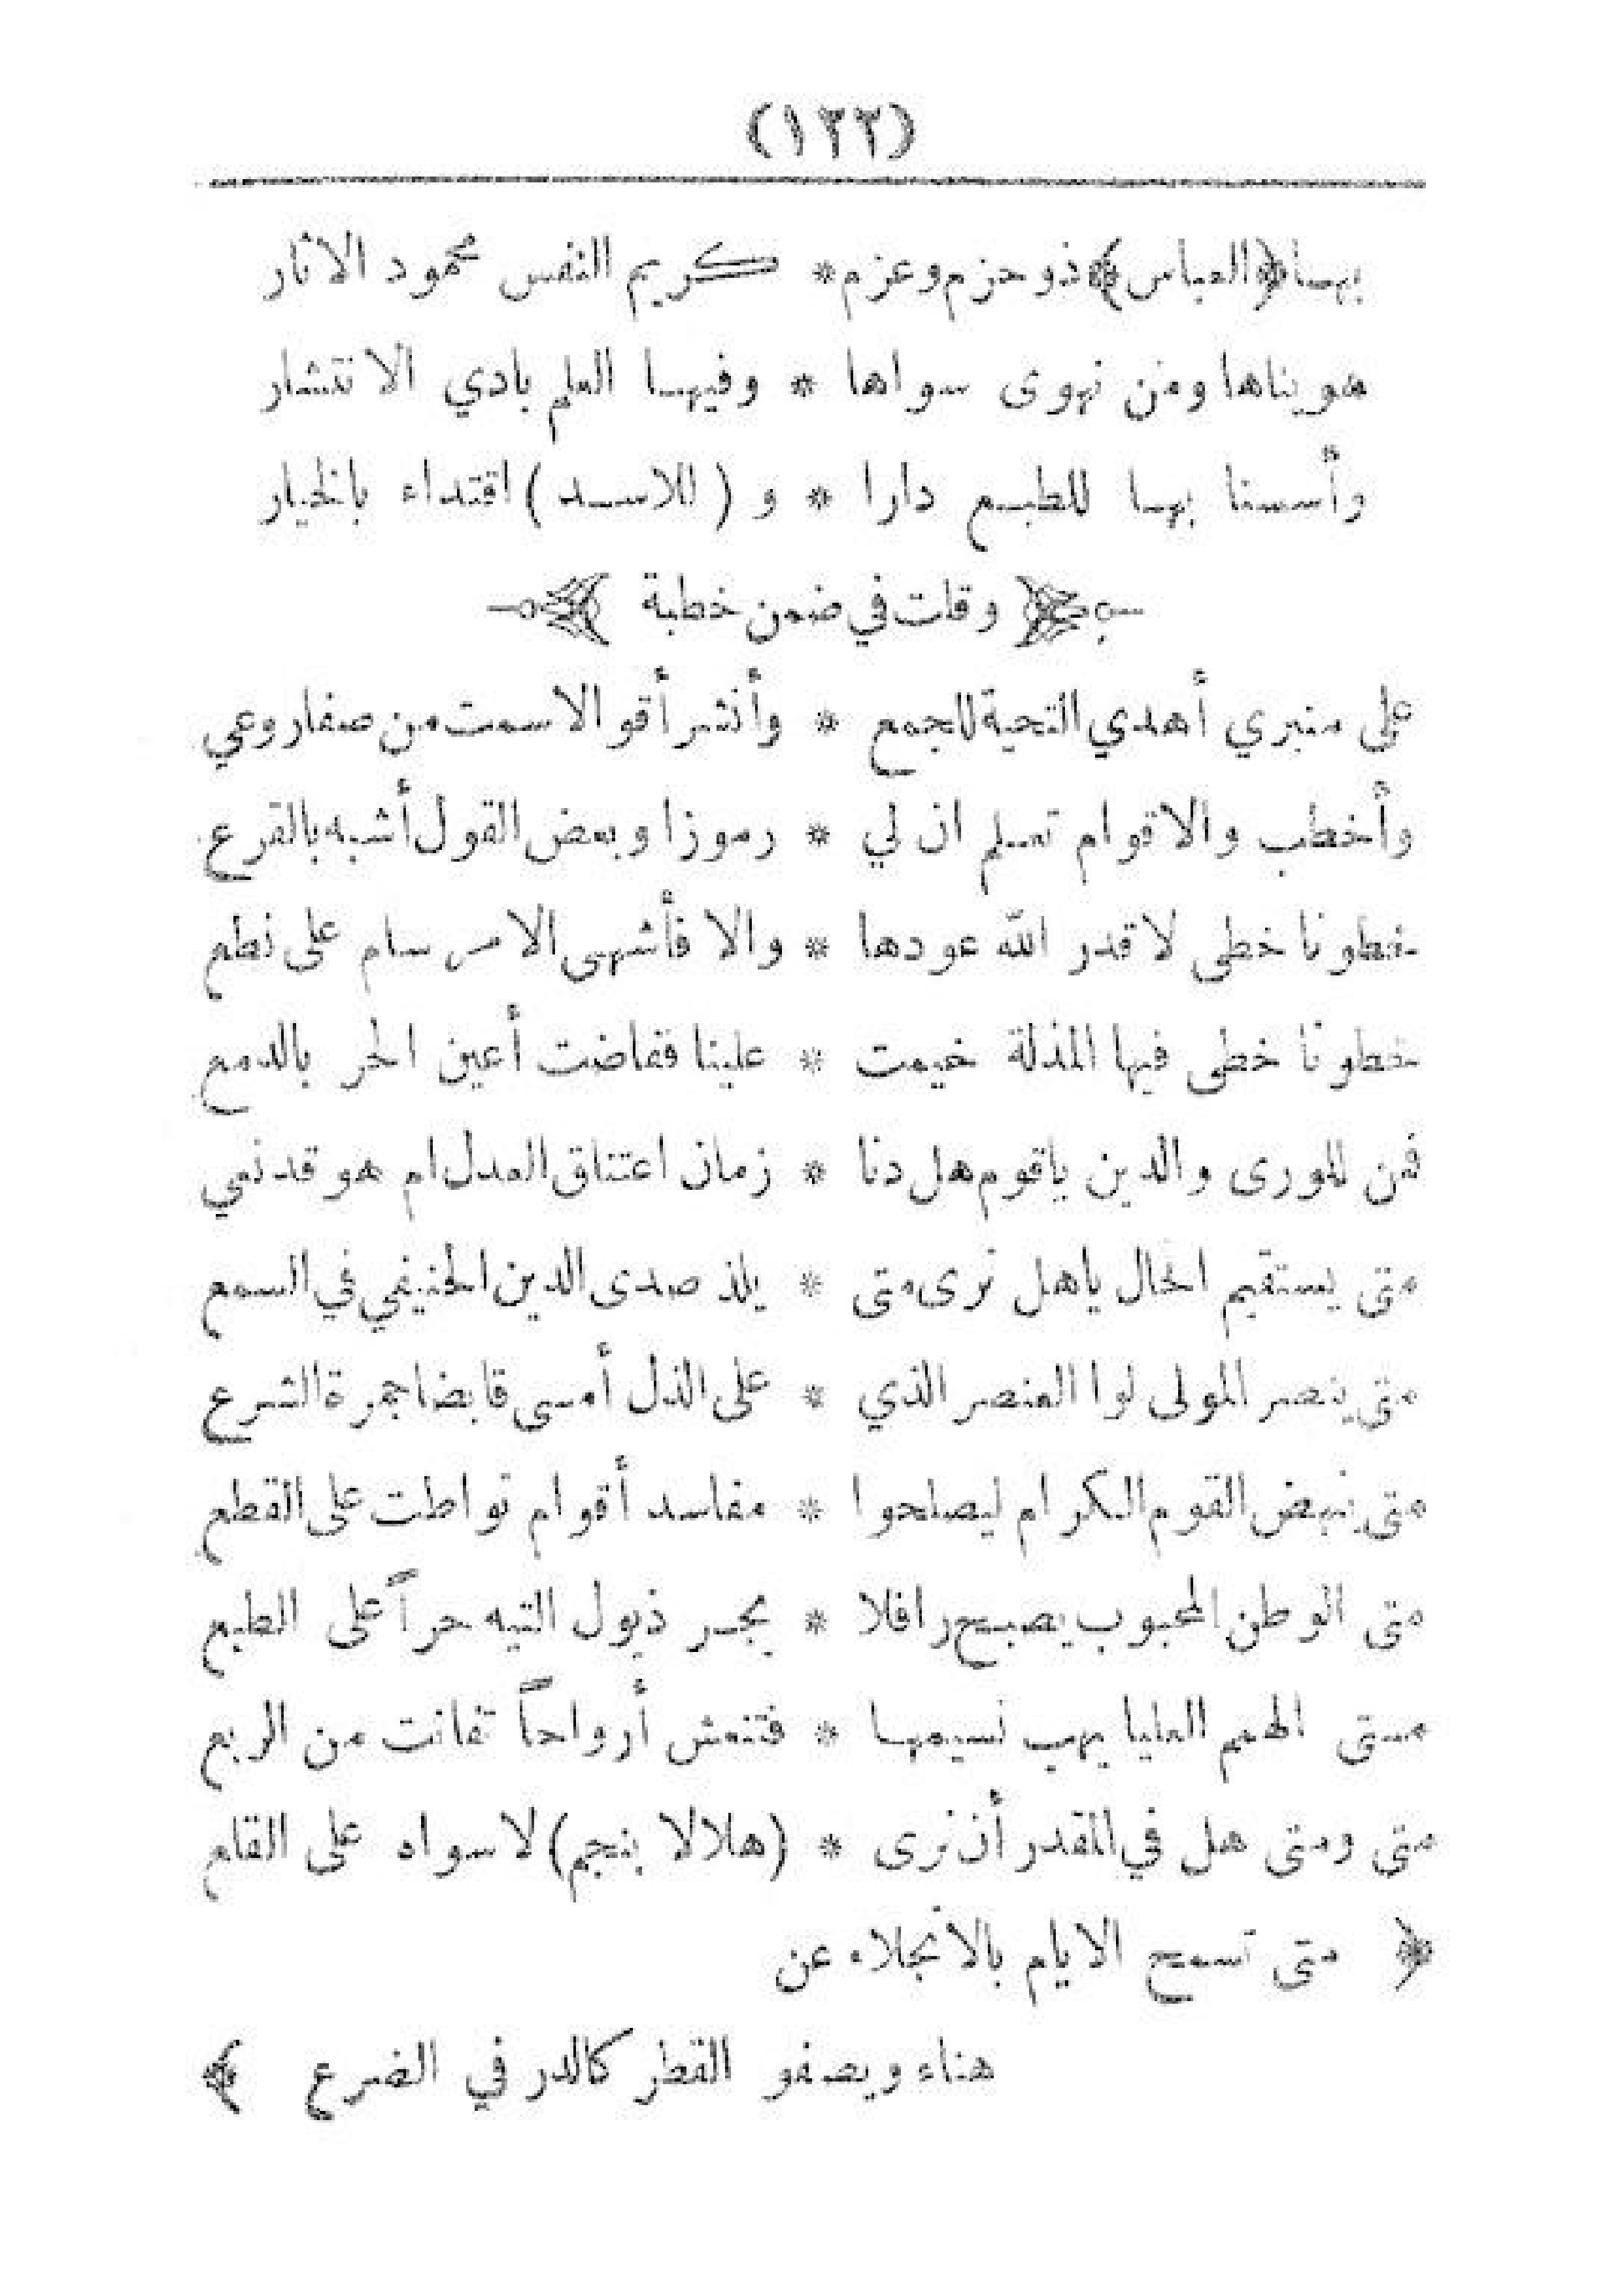 (١٢٢)
بهـا﴿العباس﴾ذو حزم وعزم * كريم النفس محمود الاثار
هويناها ومن نهوى سواها * وفيهـا العلم بادي الانتشار
وأسسنا بهـا للطبـع دارا * و (للاسـد) اقتداء بالخيار
وقلت في ضمن خطبة
على منبري أهدي التحية للجمع * وأنشر أقوالا سمت من صفا روعي
وأخطب والاقوام تعـلم ان لي * رموزا وبعض القول أشبه بالقرع
خطونا خطى لا قدر الله عودها * والا فأشهى الامر سام على نطع
خطونا خطى فيها المذلة خيمت * علينا ففاضت أعين الحر بالدمع
فمن للورى والدين ياقوم هل دنا * زمان اعتناق العدل ام هو قد نعي
متى يستقيم الحال ياهل ترى متى * يلذ صدى الدين الحنيفي في السمع
متى ينصر المولى لوا العنصر الذي * على الذل أمسى قابضا جمرة الشرع
متى ينهض القوم الكرام ليصلحوا * مفاسد أقوام تواطت على القطع
متى الوطن المحبوب يصبـح رافلا * يجـر ذيول التيه حراً على الطبع
مـتى الهمم العليا يهب نسيمهـا * فتنعش أرواحاً تفانت من الربع
متى ومتى هل في المقدر أن نرى * (هلالا بنجم) لا سواه على القلع
﴿ متى تسمح الايام بالانجلاء عن
هناء ويصفو القطر كالدر في الضرع ﴾